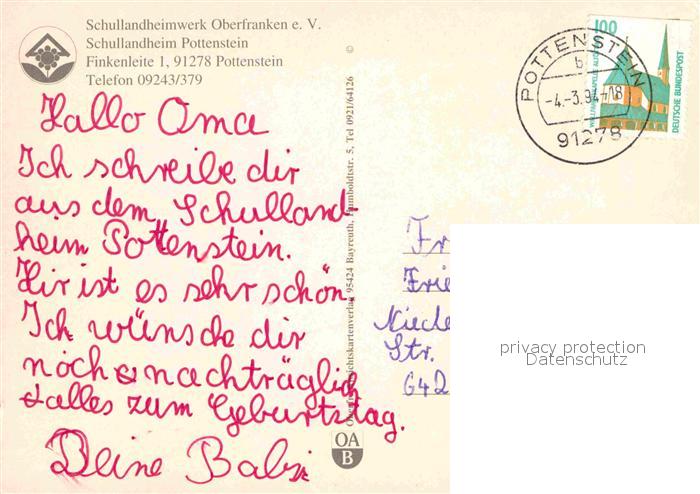 Schullandheimwerk Oberfranken e. V.
Schullandheim Pottenstein
Finkenleite 1, 91278 Pottenstein
Telefon 09243/379
Hallo Oma
Ich schreibe dir
aus dem Schulland-
heim Pottenstein.
Hir ist es sehr schön.
Ich wünsche dir
noch nachträglich
alles zum Geburtstag.
Deine Babsi
95424 Bayreuth, Humboldtstr. 5, Tel 0921/64126
OA
B
POTTENSTEIN
b
-4.-3.94-18
91278
100
DEUTSCHE BUNDESPOST
Fr
Frie
Niede
Str.
642
privacy protection
Datenschutz